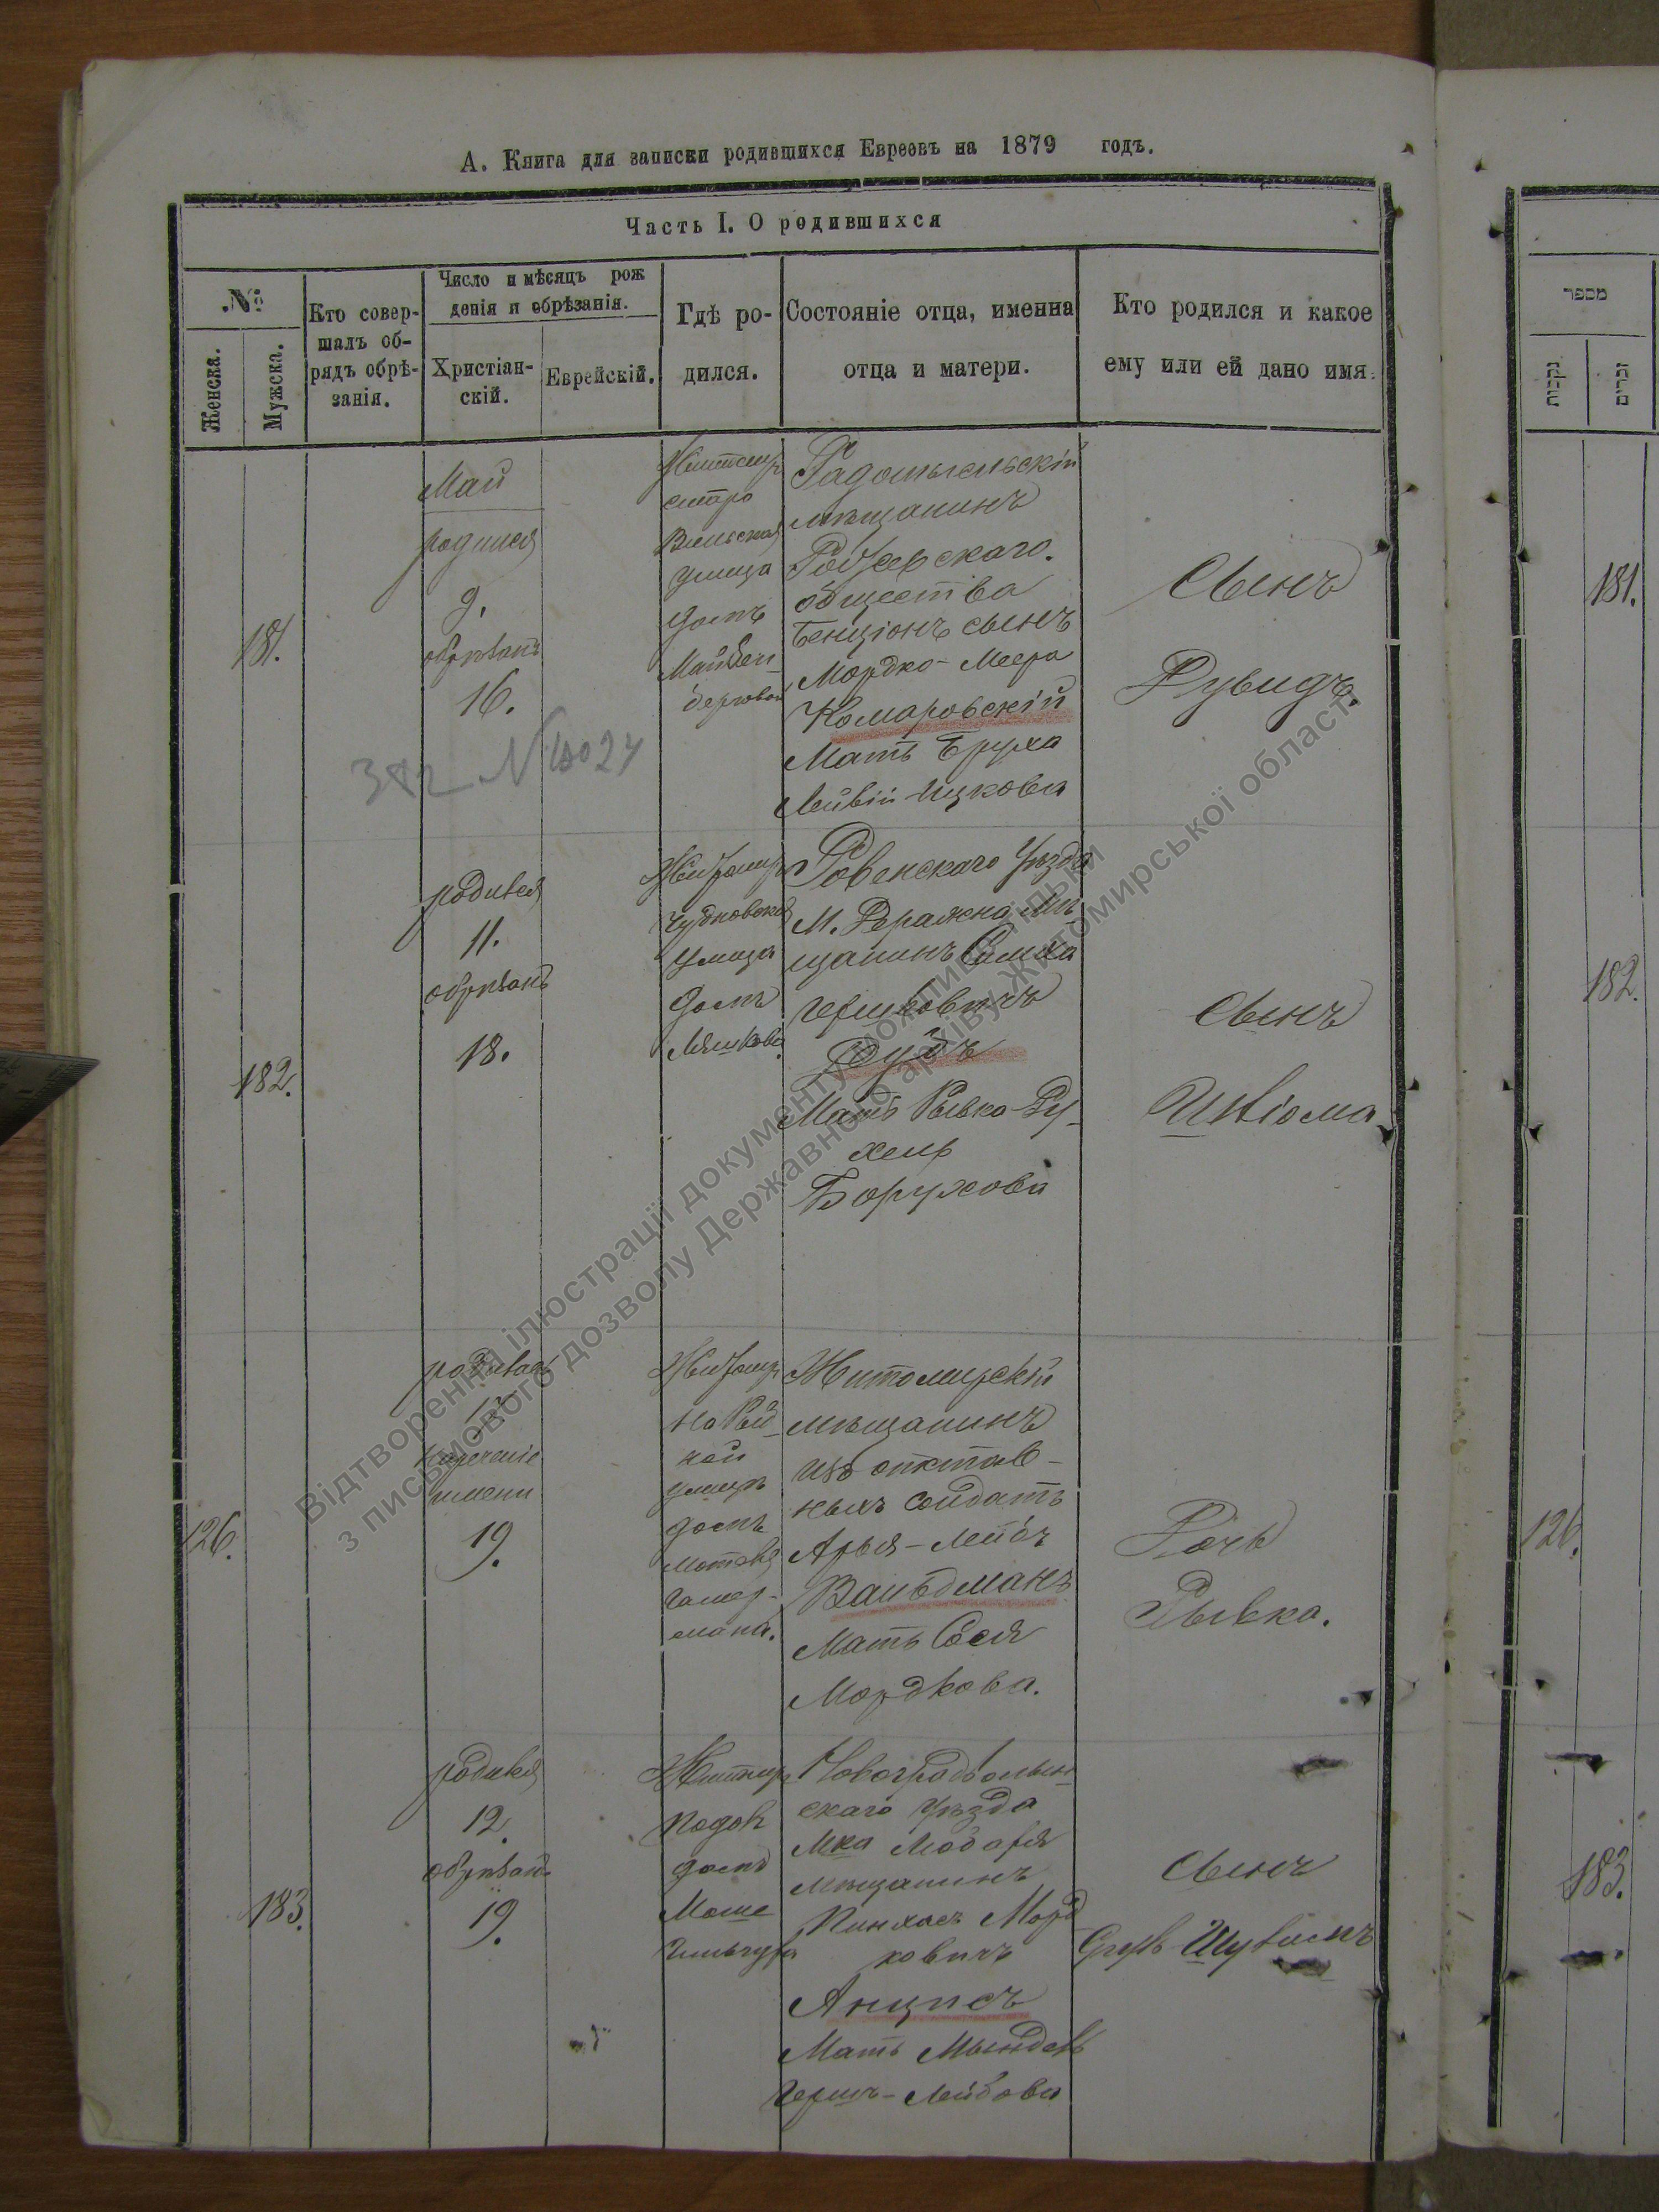 А. Книга для записки родившихся Евреевъ на 1879 годъ.
Часть I. О родившихся
№
Женска.
Мужска.
Кто совер-
шалъ об-
рядъ обрѣ-
занія.
Число и мѣсяцъ рож
денія и обрѣзанія.
Христіан-
скій.
Еврейскій.
Гдѣ ро-
дился.
Состояніе отца, именна
отца и матери.
Кто родился и какое
ему или ей дано имя.
181.
Май
родился
9.
обрѣзанъ
16.
Вильская
улица
домъ
Радомысльскій
мѣщанинъ
общества
Бенціонъ сынъ
Мордко-Меера
Комаровскій
Мать Бруха
Лейвій-Ицкова
Сынъ
Рувидъ.
182.
родился
11.
обрѣзанъ
18.
Житомир
Чудновская
улица
домъ
Ровенскаго уѣзда
М. Деражна мѣ-
щанинъ Симха
Гершковичъ
Дубъ
Мать Рывка-Ру-
хель
Борухова
Сынъ
126.
родилась
нареченіе
имени
19.
Житомир
улицѣ
домъ
Житомирскій
мѣщанинъ
изъ отстав-
ныхъ солдатъ
Арья-Лейбъ
Вальдманъ
Мать Сося
Мордкова.
Дочь
Рывка.
183.
родился
12.
обрѣзанъ
19.
домъ
Моше
Новоградволын-
скаго уѣзда
Мка Любаря
мѣщанинъ
Пинхасъ Морд
ковичъ
Анцисъ
Мать Мындель
Гершъ-Лейбова
Сынъ
מספר
נקבות
זכרים
181.
182.
126.
183.
Відтворення ілюстрації документу можливе тільки
з письмового дозволу Державного архіву Житомирської області